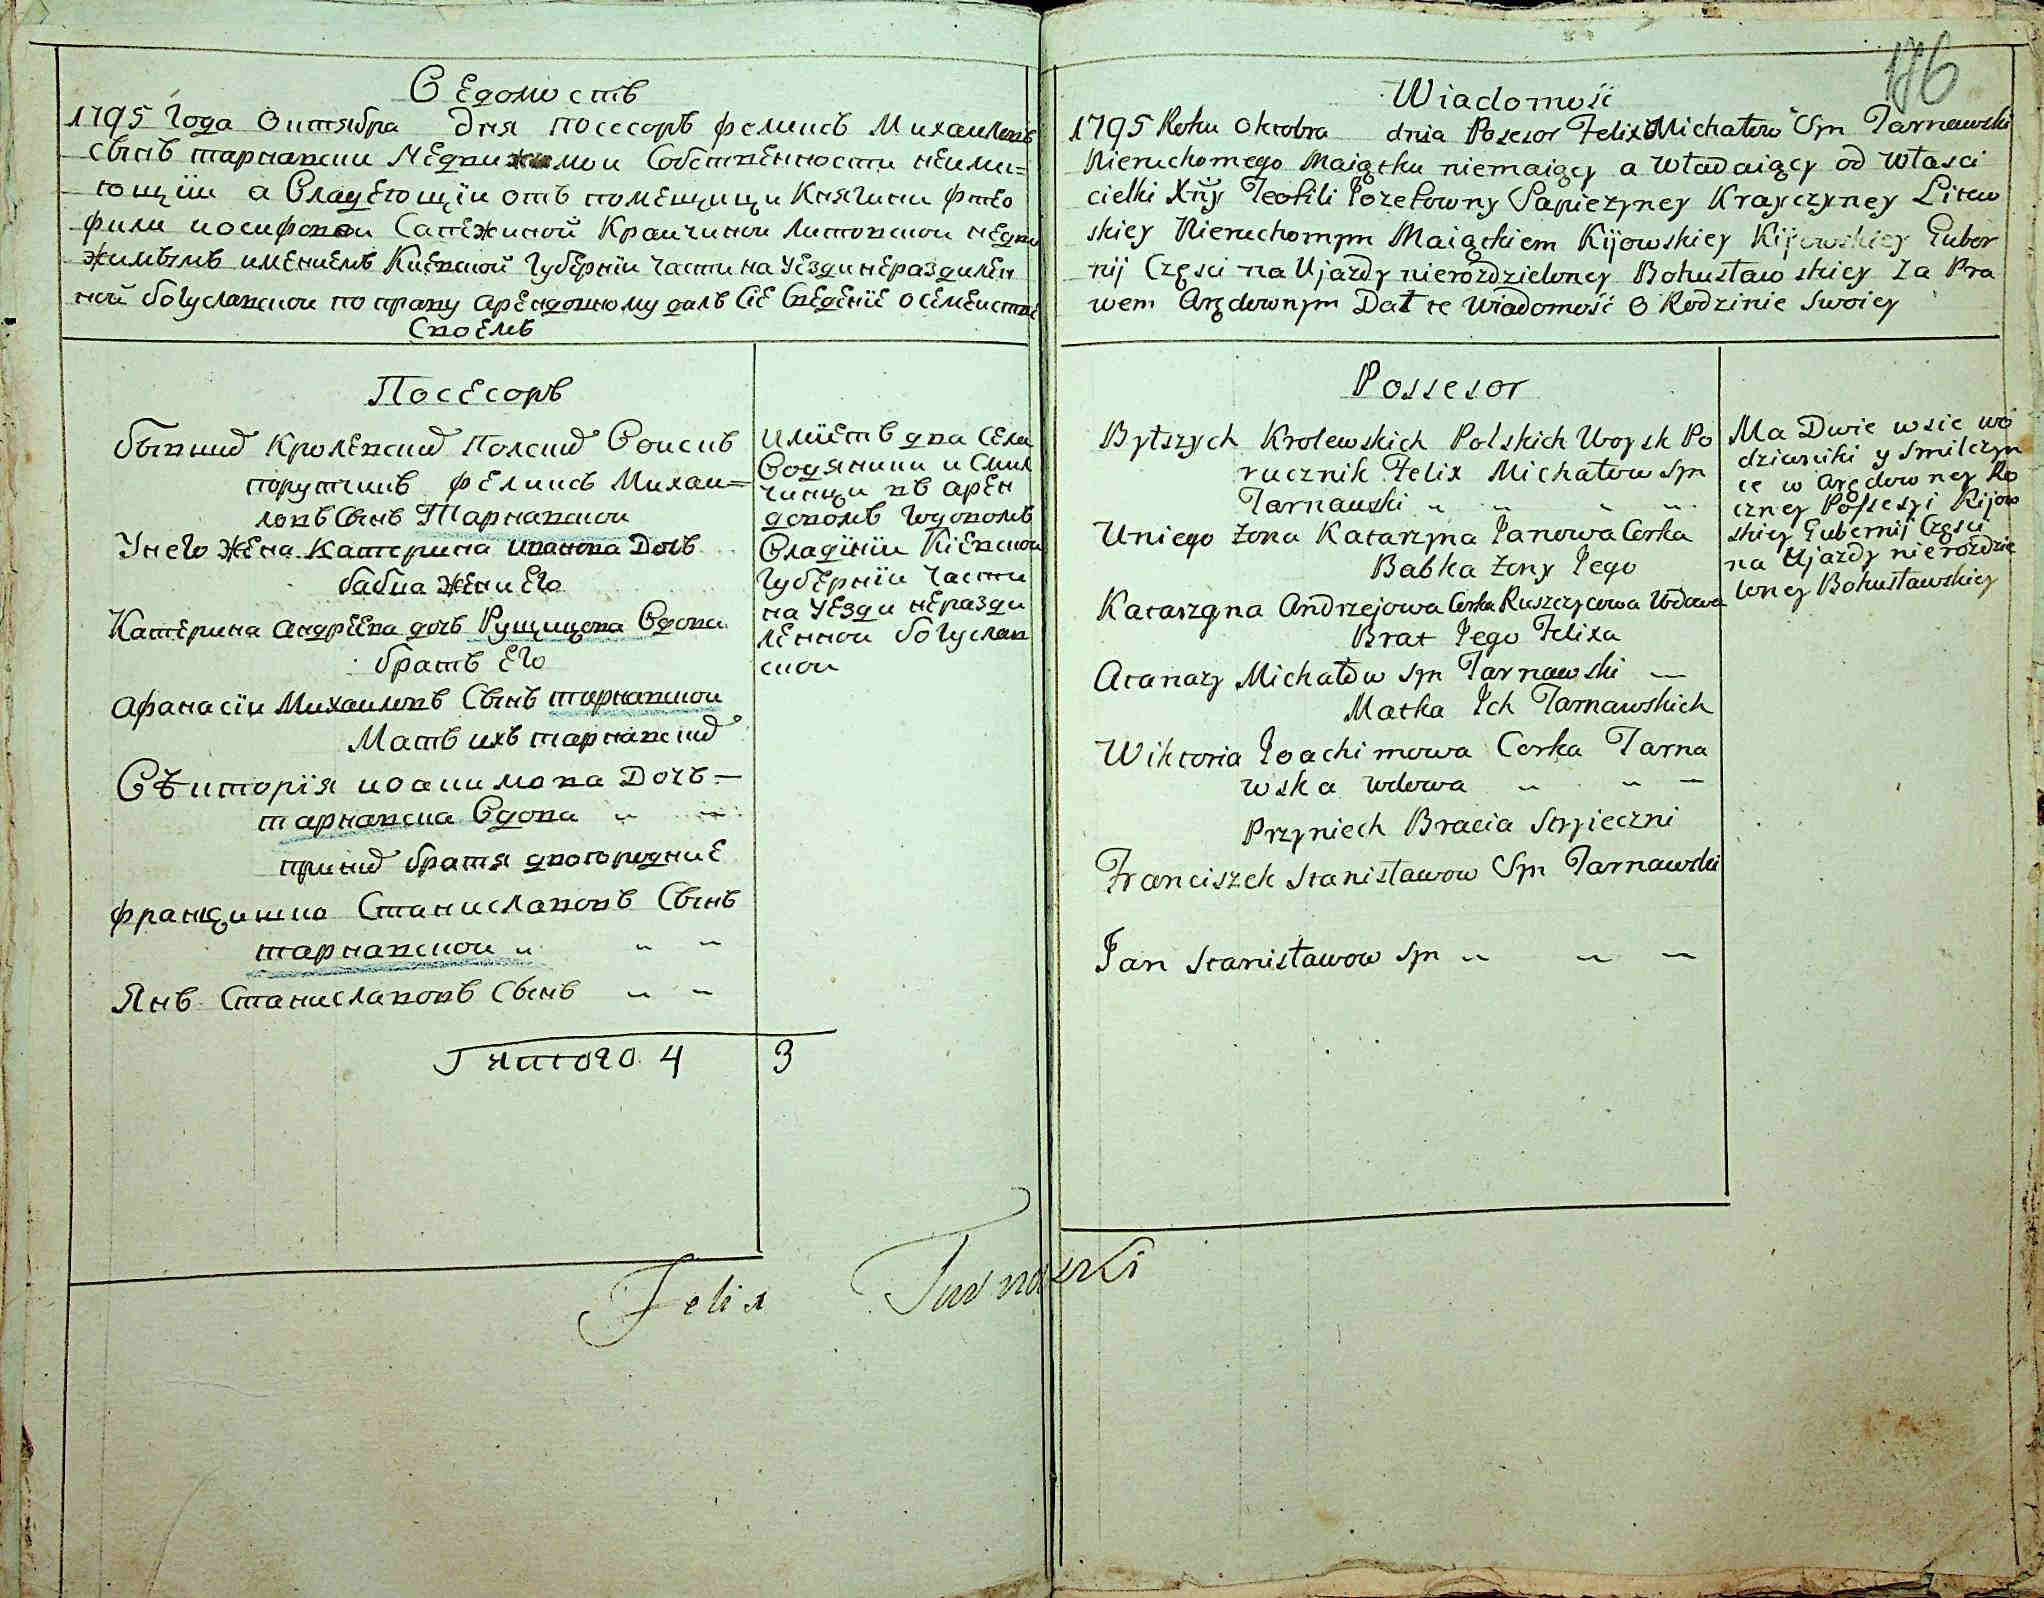 Ведомость
1795 Года Октября дня посесоръ феликсъ Михаиловъ
сынъ тарнавски Недвижимои Собственности неими=
ющiи а Владеющiи отъ помещицы Княгини фтео
фили иосифовои Сапежиной Краичинои Литовскои недви
жимымъ имениемъ Киевской Губернiи части на Уезди неразделен
ной богуславскои по праву арендовному далъ Cie Сведенiе о семеистве
Своемъ
Посесоръ
бывшид Кролевскид Полскид Воискъ
порутчикъ феликсъ Михаи=
ловъ Сынъ Тарнавскои
Унего Жена Катерина иванова Дочь
бабка жени Его
Катерина андреева дочь Рущицова Вдова
братъ Его
афанасiи Михаиловъ Сынъ тарнавскои
Мать ихъ тарнавскид
Вѣкторiя иоакимова Дочь =
тарнавска Вдова " "
принид братя двоюродние
францишко Станиславовъ Сынъ
тарнавскои " " "
Янъ Станиславовъ Сынъ " "
итого 4 3
имiетъ два Села
Водяники и Смил
чинци въ арен
довомъ Годовомъ
Владiнiи Кiевскои
Губернiи части
на Уезди неразди
леннои богуслав
скои
Felix Tarnawski
176
Wiadomość
1795 Roku Oktobra dnia Posesor Felix Michałow Syn Tarnawski
Nieruchomego Maiątku niemaiący a Władaiący od Właści
cielki Xny Teofili Jozefowny Sapieżyney Krayczyney Litew
skiey Nieruchomym Maiątkiem Kijowskiey Kijowskiey Guber
nij Części na Ujazdy nierozdzieloney Bohusławskiey Za Pra
wem Arędownym Dał te Wiadomość O Rodzinie Swoiey
Possesor
Bytszych Krolewskich Polskich Woysk Po
rucznik Felix Michałow Syn
Tarnawski " " " "
Uniego żona Katarzyna Janowa Corka
Babka żony Jego
Katarzyna Andrzejowa Corka Ruszczycowa Wdowa
Brat Jego Felixa
Atanazy Michałow Syn Tarnawski —
Matka Ich Tarnawskich
Wiktoria Joachimowa Corka Tarna
wska wdowa " " —
Przyniech Bracia Stryieczni
Franciszek Stanisławow Syn Tarnawski
Jan Stanisławow Syn " " —
Ma Dwie wsie wo
dzianiki y Smilczyn
ce w Arędowney Ro
czney Possesyi Kijow
skiey Gubernij Części
na Ujazdy nierozdzie
loney Bohusławskiey